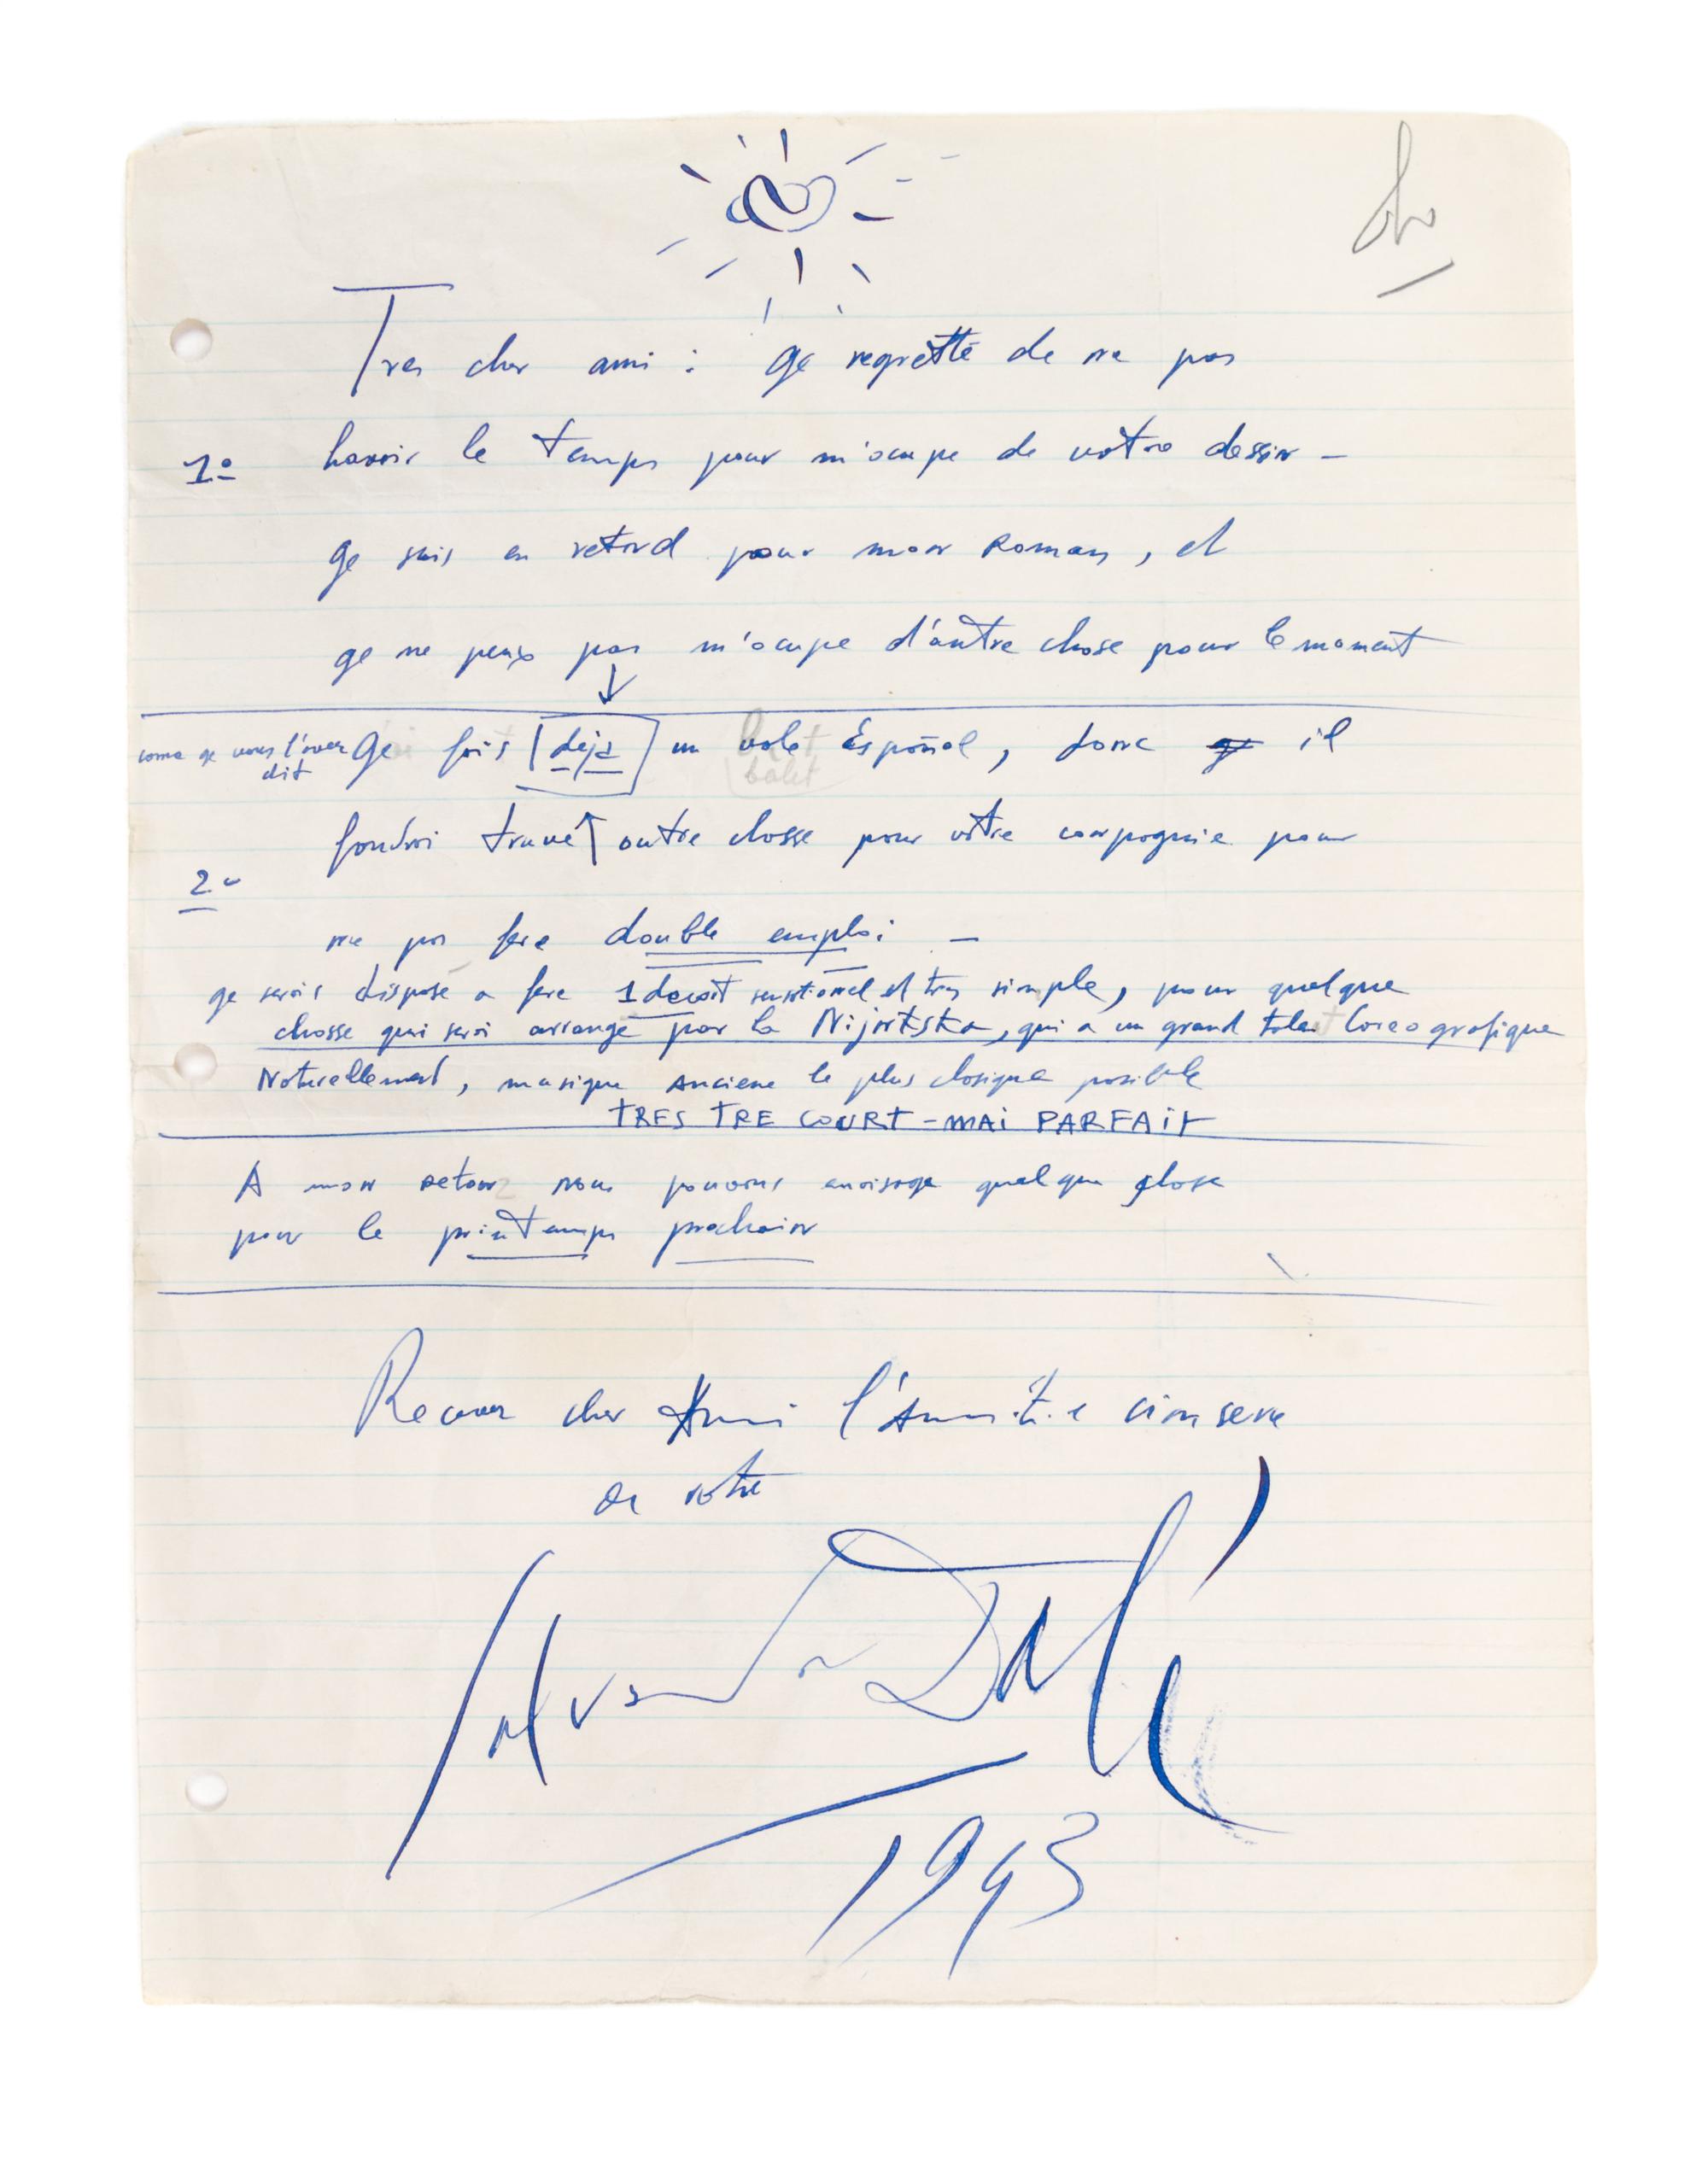 Tres cher ami : ge regrette de ne pas
1º havoir le temps pour m'ocupe de votre dessin -
ge suis en retard pour mon Roman, et
ge ne peux pas m'ocupe d'autre chose pour le moment
come ge vous l'aver dit
Ge fais deja un vale Español, donc il
balet
foudrai truve autre chosse pour votre compagnie pour
2º
ne pas fere double emploi -
ge serais dispose a fere 1 decort sensationel et tres simple, pour quelque
chosse qui serai arrange par la Nijintska, qui a un grand talent Coreografique
Naturellement, musique anciene le plus clasique posible
TRES TRE COURT - MAI PARFAIT
A mon retour nous pouvons envisage quelque chose
pour le printemps prochain
Recever cher Ami l'Amitie cinsere
de votre
Salvador Dalí
1943